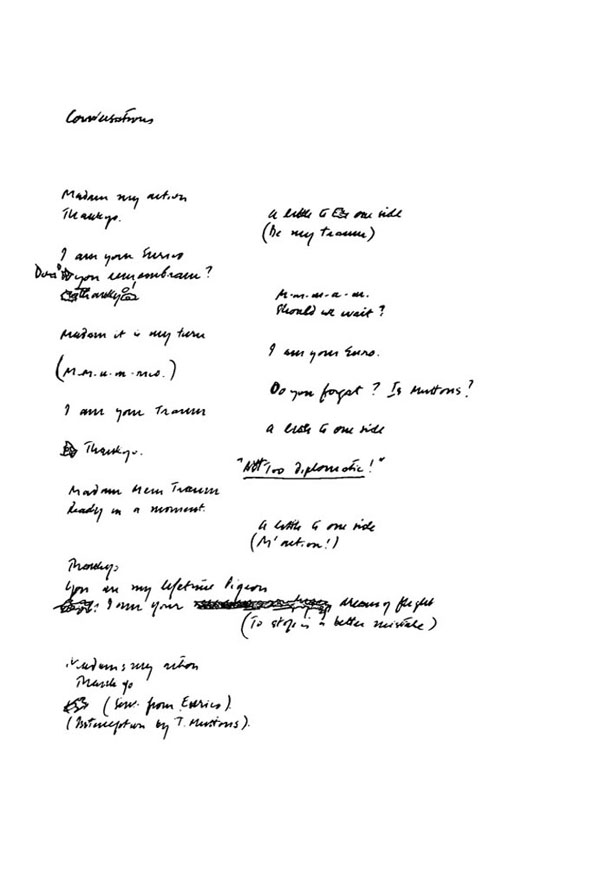 Conversations
Madam my action
Thankyo.
A little to one side
(Be my Traum)
I am your Enrico
you remembraum?
M.m.m.a.m.
Should we wait?
Madam it is my turn
I am your Euro.
(M.m.u.m.mus.)
Do you forget? Is Muttons?
I am your Traum
A little to one side
Thankyo.
"Not Too Diplomatic!"
Madam Mem Traum
Ready in a moment.
A little to one side
(M'action!)
Thankyo
You are my lifetime Pigeon
I am your dream of flight
(To stop is a better mistake)
Madam my action
Thank yo
(Serv. from Enrico).
(Interception by T. Muttons).